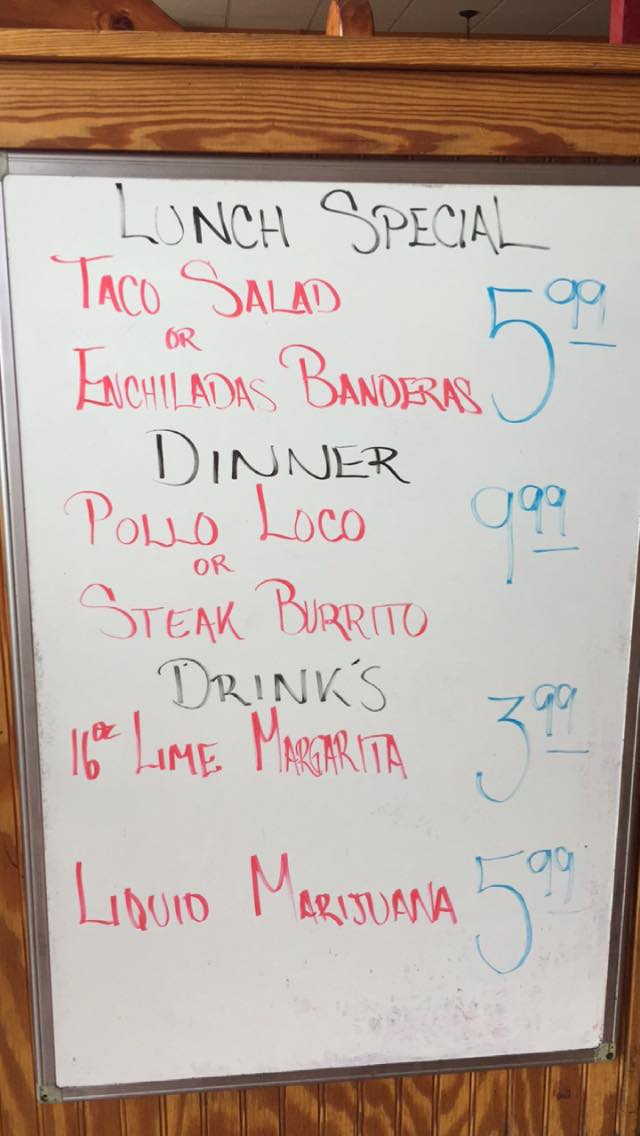 LUNCH SPECIAL
TACO SALAD
OR
ENCHILADAS BANDERAS 5.99
DINNER
POLLO LOCO 9.99
OR
STEAK BURRITO
DRINK'S
16oz LIME MARGARITA 3.99
LIQUID MARIJUANA 5.99